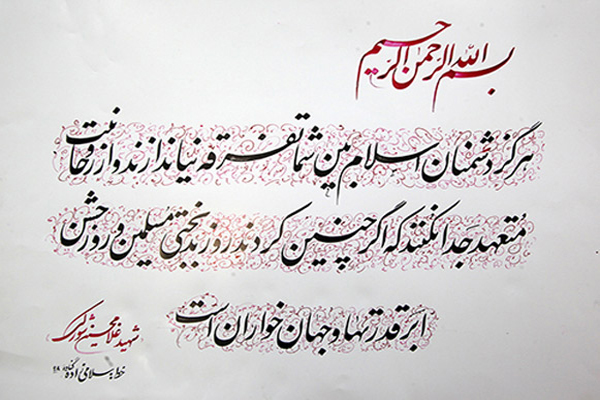 بسم الله الرحمن الرحیم
هرگز دشمنان اسلام بین شما تفرقه نیاندازند و از روحانیت
متعهد جدا نکنند که اگر چنین کردند روز بدبختی مسلمین و روز جشن
ابرقدرتها و جهان خواران است
شهید غلامحسین
خط